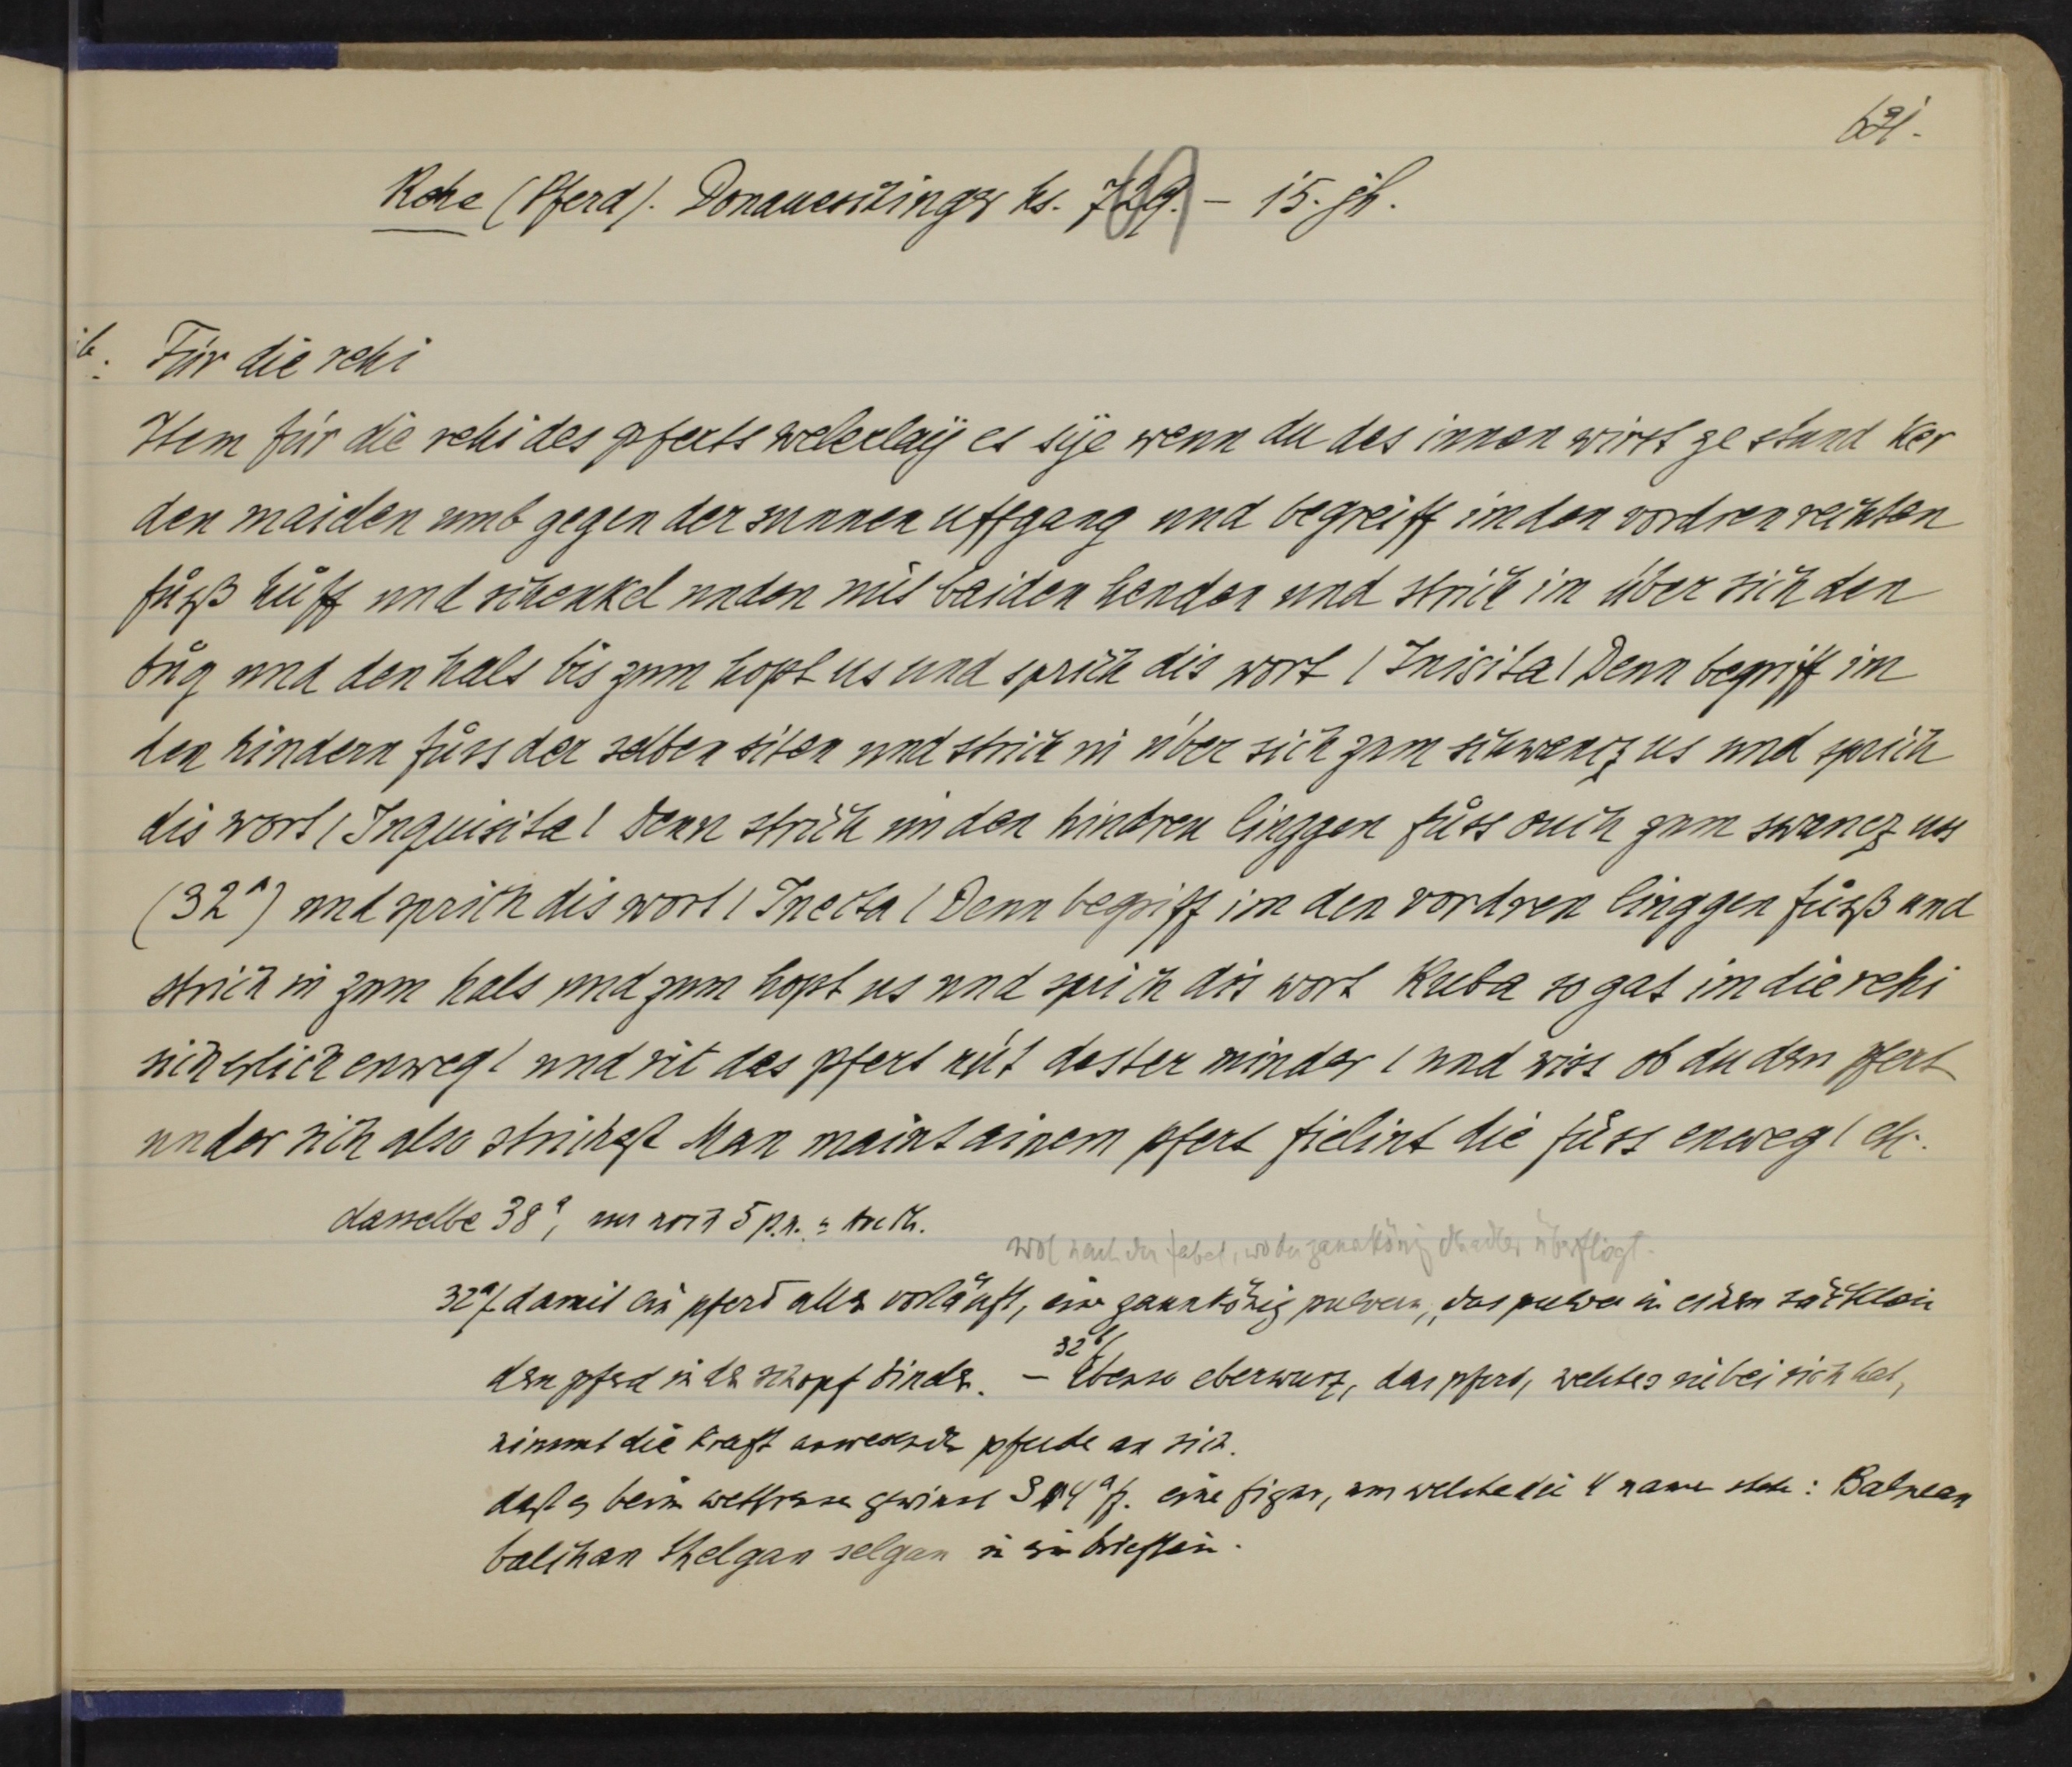 Rehe (Pferd). Donaueschinger hs. 729. – 15. jh.
Für die rehi
Item für die rehi des pferts welerlaÿ es sÿe wenn du des innen wirst ze stund ker
den maiden umb gegen der sunnen uffgang und begreiff im den vordren rechten
fůsß hůff und schenkel unden mit baiden henden und strich im über sich den
bůg und den hals bis zum hopt us und sprich dis wort / Inisita / Denn begriff im
den hindern fůss der selben siten und strich in über sich zum schwancz us und sprich
dis wort / Inquisita / Denn strich im den hindren linggen fůss ouch zum swancz uss
(32ᵃ) und sprich dis wort / Inecta / Denn begriff im den vordren linggen fůsß und
strich in zum hals und zum hopt us und sprich dis wort Kuba so gat im die rehi
sicherlich enweg / und rit das pfert nüt dester minder / und wiss ob du dem pfert
under sich also strichest Man maint ainem pfert fielint die füss enweg / etc.
dasselbe 38ᵃ, nur noch 5 p.n.
wol nach der fabel, wo der zaunkönig den adler überfliegt.
32ᵃ/ damit ein pferd alle vorläuft, einen zaunkönig pulvern, „das pulver in einem säcklein
dem pferd in den schopf binden. – 32ᵇ/ Ebenso eberwurz, das pferd, welches sie bei sich hat,
nimmt die kraft anwesender pferde an sich.
daß es beim wettrennen gewinnt 34ᵃ/. eine figur, um welche die 4 namen stehn: Balnean
balchan thelgan selgan in ein brieflein.